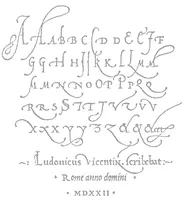 A A A B B C C D D E E F F
G G H H I I K K L L M M
M M N N O O T P P Q Q
R R S S T T V V V V
X X X Y Y Z & & &
Ludouicus Vicentin. scribebat
Rome anno domini
· MDXXII ·